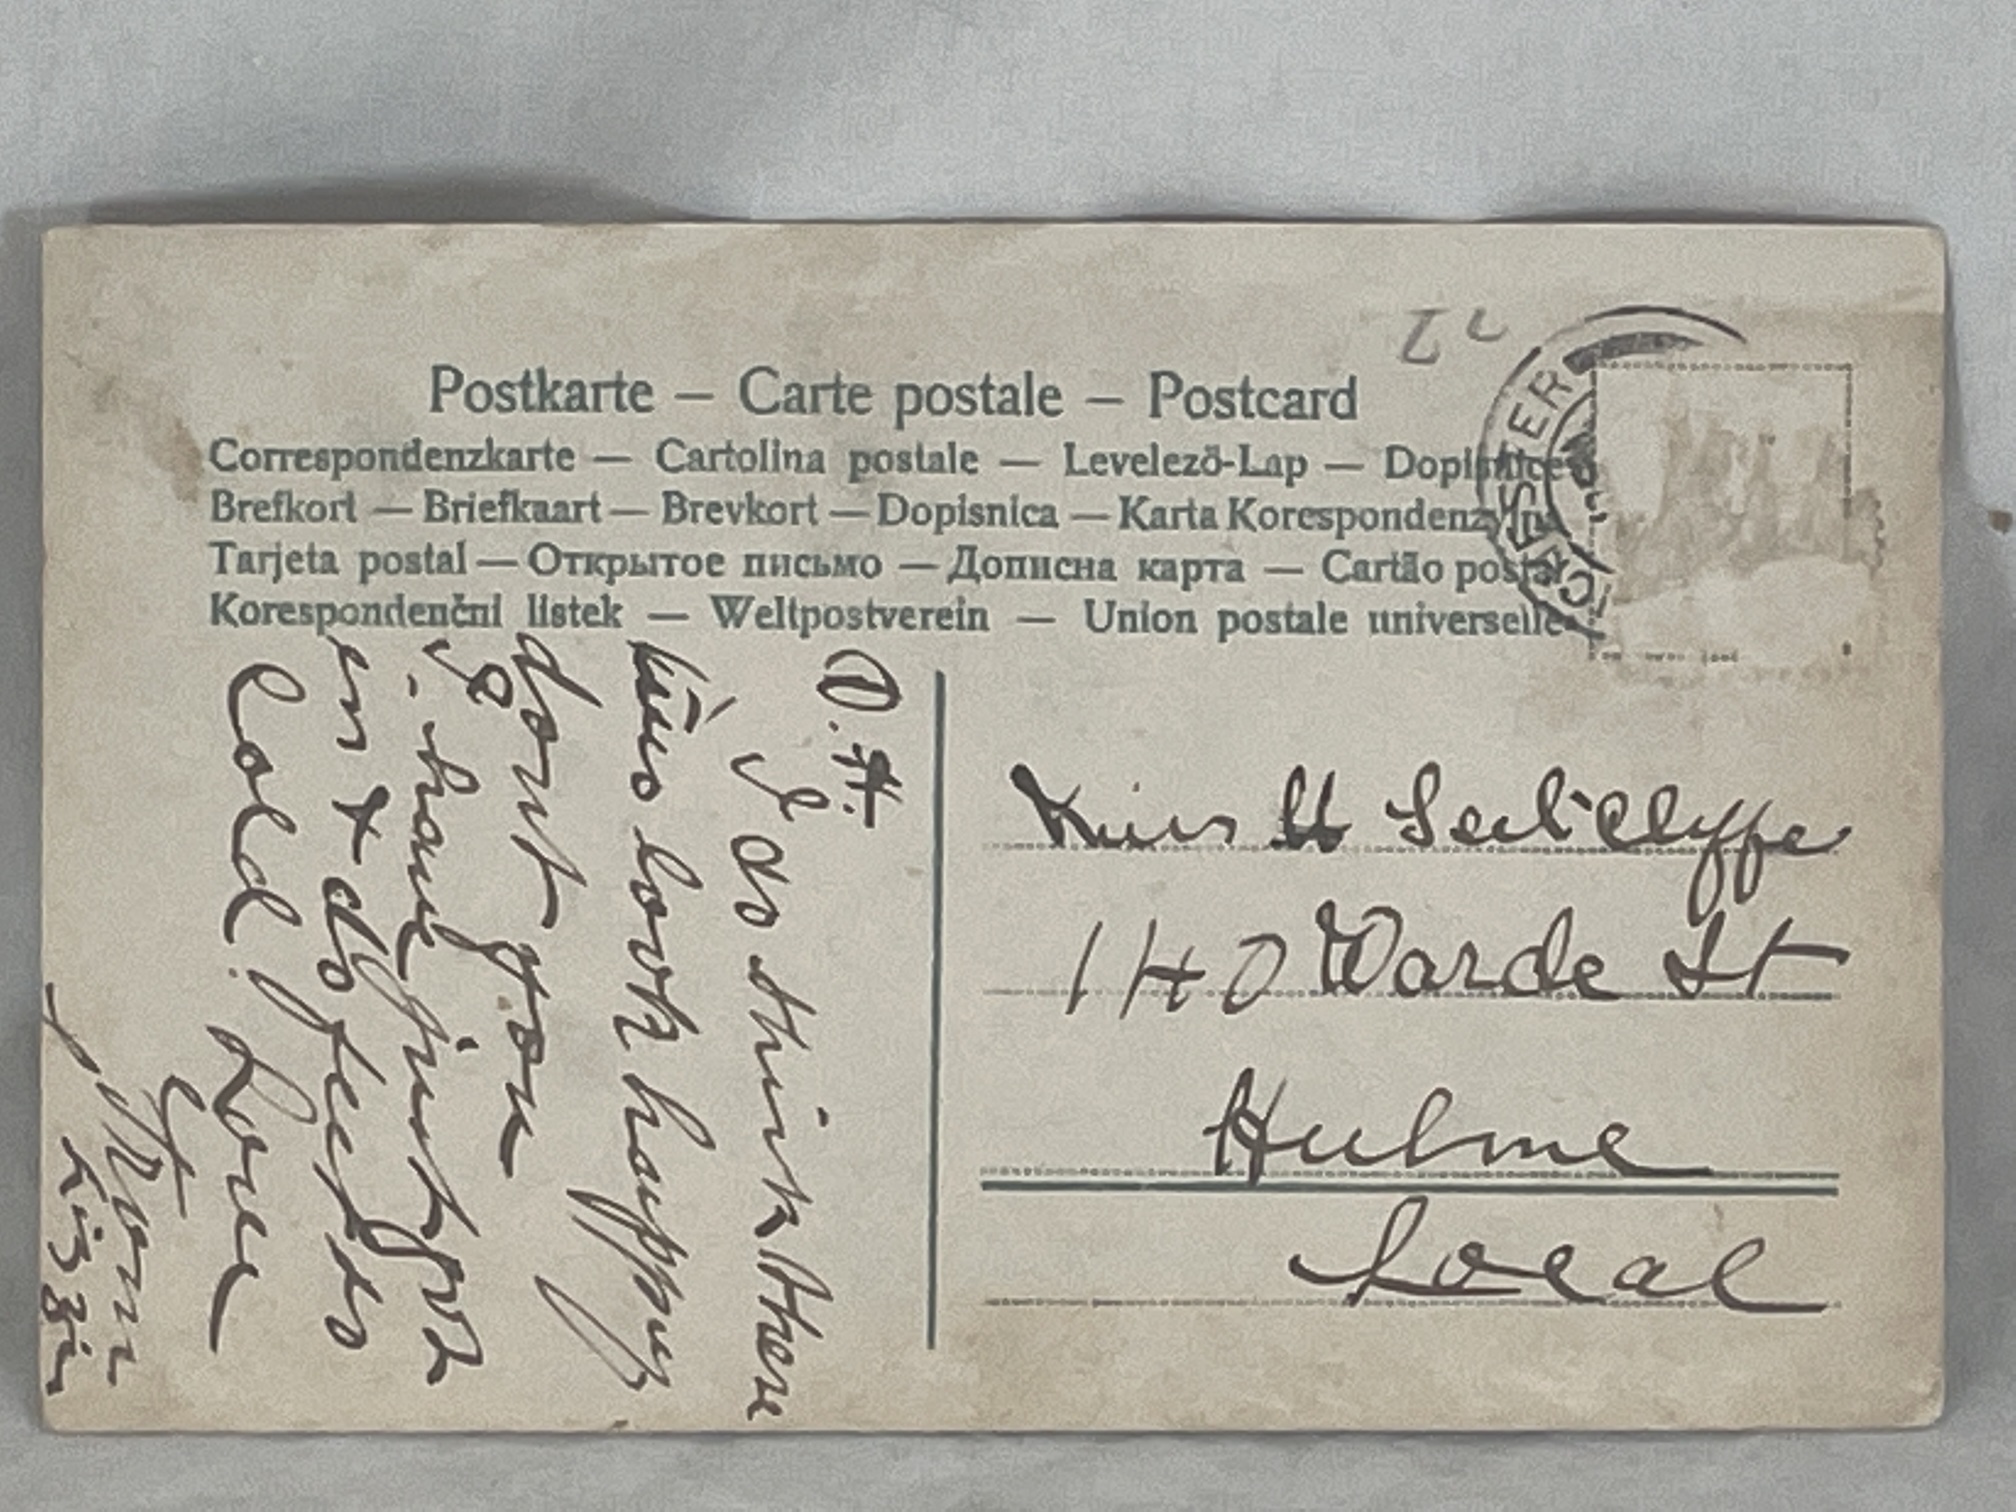 Postkarte — Carte postale — Postcard
Correspondenzkarte — Cartolina postale — Levelező-Lap — Dopisnice
Brefkort — Briefkaart — Brevkort — Dopisnica — Karta Korespondenzyjna
Tarjeta postal — Открытое письмо — Дописна карта — Cartão postal
Korespondenční listek — Weltpostverein — Union postale universelle
D. H.
I do think these
two look happy
dont you
I have just got
in & do feel so
Cold! Love
from
Lizzie
Miss
140 Warde St
Hulme
Local